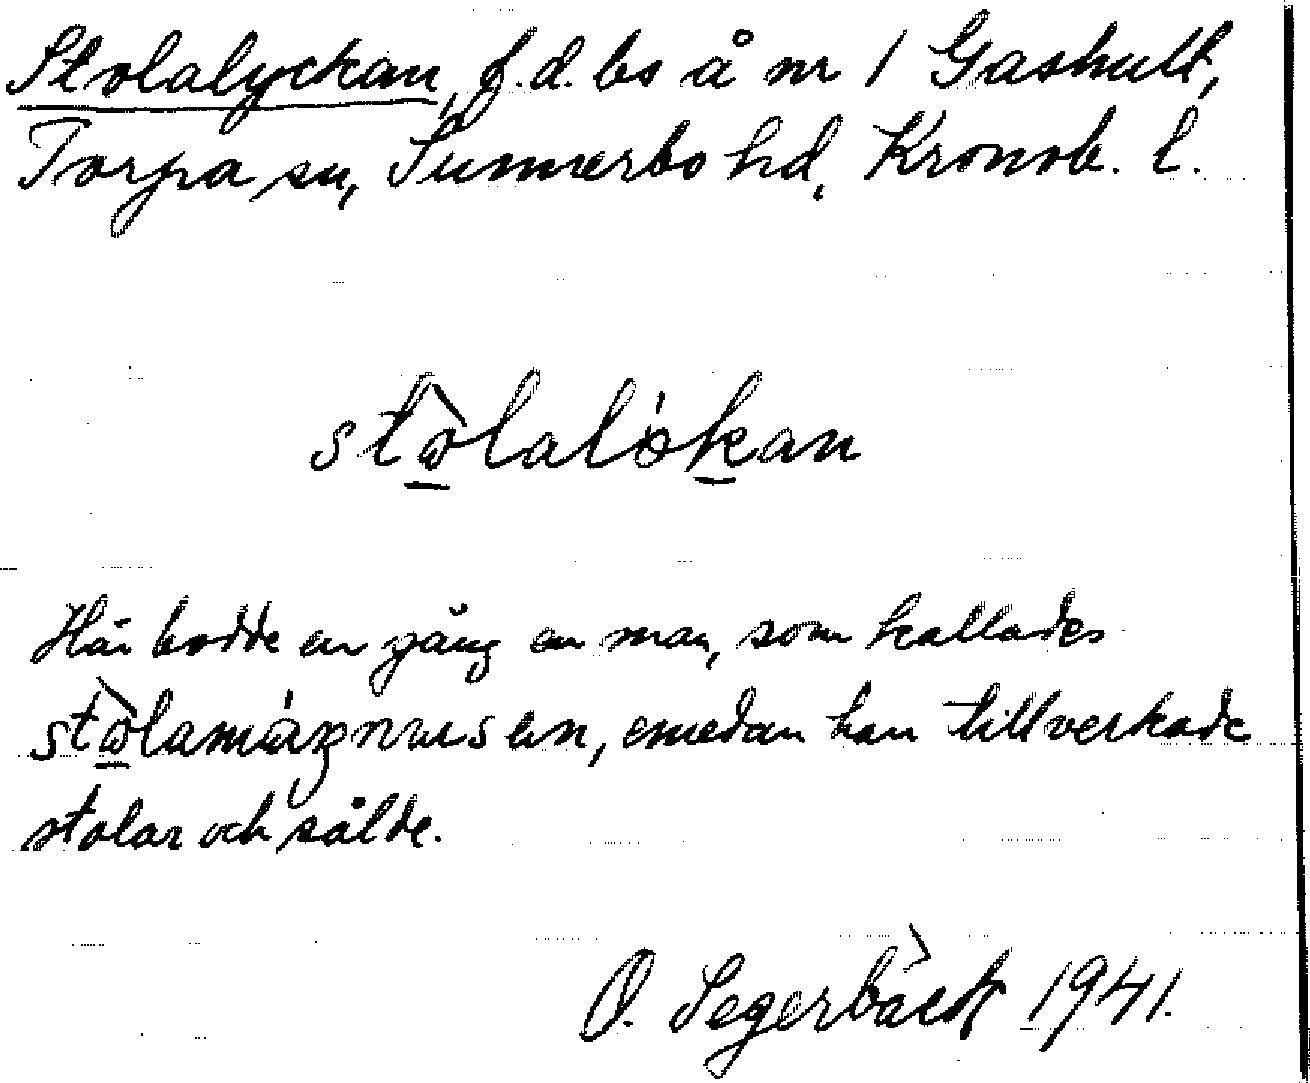 Stolalyckan, f.d. bs å nr 1 Gashult,
Torpa sn, Sunnerbo hd, Kronob. l.
stɷ̀lalö́kan
Här bodde en gång en man, som kallades
stɷ̀lamáŋnusen, emedan han tillverkade
stolar och sålde.
O. Segerbäck 1941.